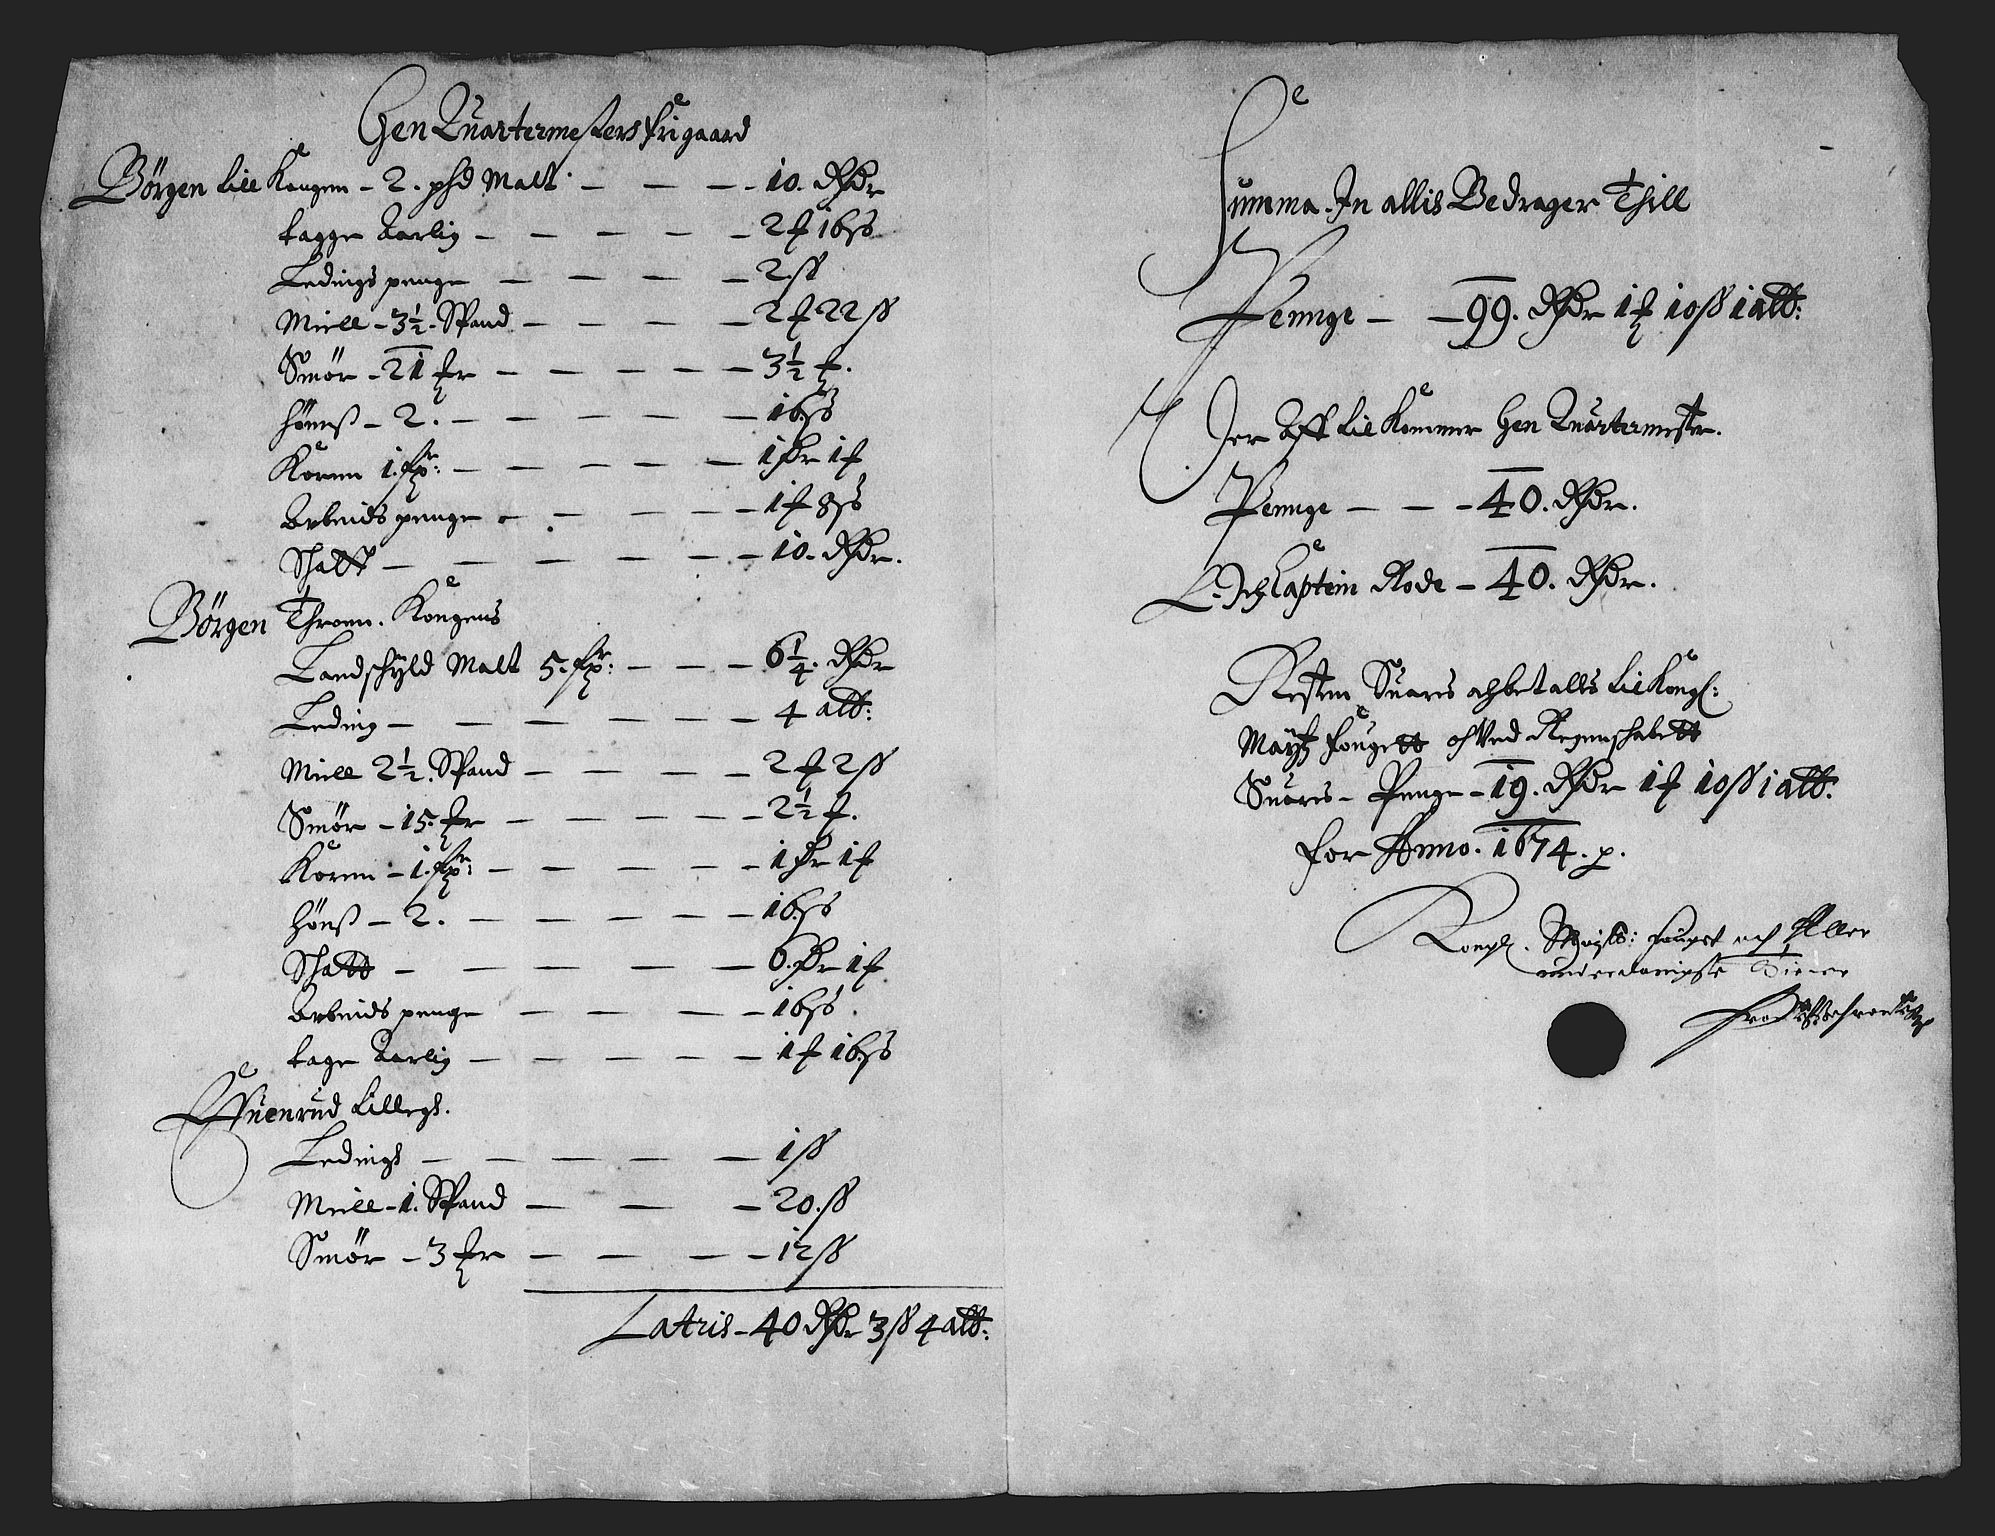 Gen Quartermesters frigaard
Börgen till Kongen - 2. phd Malt - 10. Rixdr
tagge Aarlig - 2 ƒ 16 ß
Ledings penge - 2 ß
Miell - 3½. Spand - 2 ƒ 22 ß
Smör - 21 mkr - 3½ ƒ.
Hönß - 2. - 16 ß
Koren 1. fp: - 1 Rdr 1 ƒ
Arbeids penge - 1 ƒ 8 ß
Schatt - 10. Rixdr.
Börgen Throen. Kongens
Landschÿld Malt 5. fp: - 6¼. Rixdr
Leding - 4 alb:
Miell 2½. Spand - 2 ƒ 2 ß
Smör - 15. mkr - 2½ ƒ.
Koren - 1. fp: - 1 Rdr 1 ƒ
Hönß - 2. - 16 ß
Schatt - 6. Rdr 1 ƒ
Arbeids penge - 16 ß
tage Aarlig - 1 ƒ 16 ß
lillegd.
Ledings - 1 ß
Miell - 1. Spand - 20. ß
Smör - 3 mkr - 12 ß
Latris - 40 Rixdr 3 ß 4 alb:
Summa. In allis Bedrager Thill
Pennge - 99. Rixdr 1 ƒ 10 ß 1 alb:
Der Aff till Kommer Gen Quartermester.
Pennge - 40. Rixdr.
Och Captein Rode - 40. Rixdr.
Resten Suaris och betallis till Kongl:
Mayts fougett och Ved Regenschabett
Suaris - Penge - 19. Rixdr 1 ƒ 10 ß 1 alb:
for Anno. 1674. p.
Kongl. Mayts: fouget och Aller
underdanigste Tiener